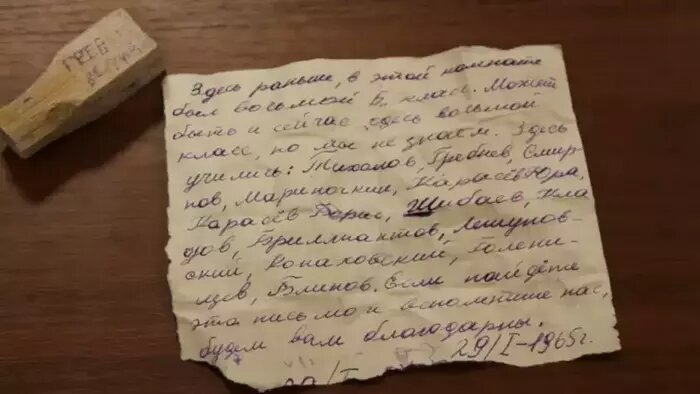 ГРЕБ
Здесь раньше, в этой комнате
был восьмой Б класс. Может
быть и сейчас здесь восьмой
класс, но мы не знаем. Здесь
учились: Тихонов, Гребнев, Смир-
нов, Мариночкин, Карасёв Юра,
Карасёв Борис, Шибаев, Кла
дов, Бриллиантов, Лешунов-
ский, Конаховский, Голени-
щев, Блинов. Если найдёте
это письмо и вспомните нас,
будем вам благодарны.
29/I-1965г.